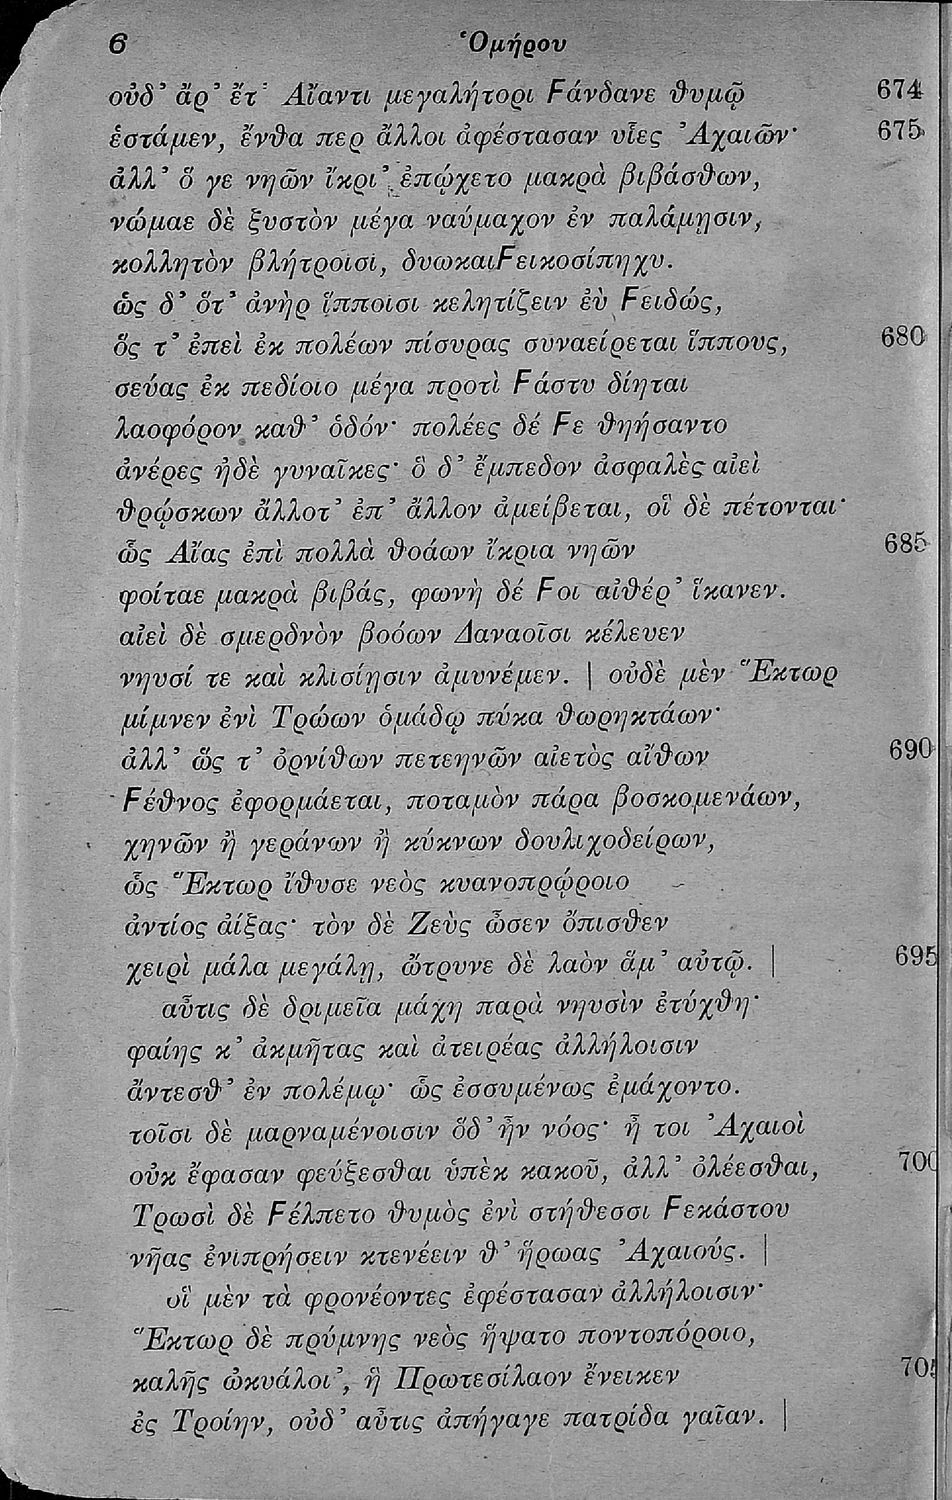 6 Ὁμήρου
οὐδ’ ἄρ’ ἔτ’ Αἴαντι μεγαλήτορι Ϝάνδανε θυμῷ 674
ἑστάμεν, ἔνθα περ ἄλλοι ἀφέστασαν υἷες Ἀχαιῶν· 675
ἀλλ’ ὅ γε νηῶν ἴκρι’ ἐπῴχετο μακρὰ βιβάσθων,
νώμαε δὲ ξυστὸν μέγα ναύμαχον ἐν παλάμῃσιν,
κολλητὸν βλήτροισι, δυωκαιϜεικοσίπηχυ.
ὡς δ’ ὅτ’ ἀνὴρ ἵπποισι κελητίζειν ἐὺ Ϝειδώς,
ὅς τ’ ἐπεὶ ἐκ πολέων πίσυρας συναείρεται ἵππους, 680
σεύας ἐκ πεδίοιο μέγα προτὶ Ϝάστυ δίηται
λαοφόρον καθ’ ὁδόν· πολέες δέ Ϝε θηήσαντο
ἀνέρες ἠδὲ γυναῖκες· ὃ δ’ ἔμπεδον ἀσφαλὲς αἰεὶ
θρῴσκων ἄλλοτ’ ἐπ’ ἄλλον ἀμείβεται, οἳ δὲ πέτονται·
ὣς Αἴας ἐπὶ πολλὰ θοάων ἴκρια νηῶν 685
φοίταε μακρὰ βιβάς, φωνὴ δέ Ϝοι αἰθέρ’ ἵκανεν.
αἰεὶ δὲ σμερδνὸν βοόων Δαναοῖσι κέλευεν
νηυσί τε καὶ κλισίῃσιν ἀμυνέμεν. | οὐδὲ μὲν Ἕκτωρ
μίμνεν ἐνὶ Τρώων ὁμάδῳ πύκα θωρηκτάων·
ἀλλ’ ὥς τ’ ὀρνίθων πετεηνῶν αἰετὸς αἴθων 690
Ϝέθνος ἐφορμάεται, ποταμὸν πάρα βοσκομενάων,
χηνῶν ἢ γεράνων ἢ κύκνων δουλιχοδείρων,
ὣς Ἕκτωρ ἴθυσε νεὸς κυανοπρῴροιο
ἀντίος ἀίξας· τὸν δὲ Ζεὺς ὦσεν ὄπισθεν
χειρὶ μάλα μεγάλῃ, ὤτρυνε δὲ λαὸν ἅμ’ αὐτῷ. | 695
αὖτις δὲ δριμεῖα μάχη παρὰ νηυσὶν ἐτύχθη·
φαίης κ’ ἀκμῆτας καὶ ἀτειρέας ἀλλήλοισιν
ἄντεσθ’ ἐν πολέμῳ· ὣς ἐσσυμένως ἐμάχοντο.
τοῖσι δὲ μαρναμένοισιν ὅδ’ ἦν νόος· ἦ τοι Ἀχαιοὶ
οὐκ ἔφασαν φεύξεσθαι ὑπὲκ κακοῦ, ἀλλ’ ὀλέεσθαι, 700
Τρωσὶ δὲ Ϝέλπετο θυμὸς ἐνὶ στήθεσσι Ϝεκάστου
νῆας ἐνιπρήσειν κτενέειν θ’ ἥρωας Ἀχαιούς. |
οἳ μὲν τὰ φρονέοντες ἐφέστασαν ἀλλήλοισιν·
Ἕκτωρ δὲ πρύμνης νεὸς ἥψατο ποντοπόροιο,
καλῆς ὠκυάλοι’, ἣ Πρωτεσίλαον ἔνεικεν 705
ἐς Τροίην, οὐδ’ αὖτις ἀπήγαγε πατρίδα γαῖαν. |